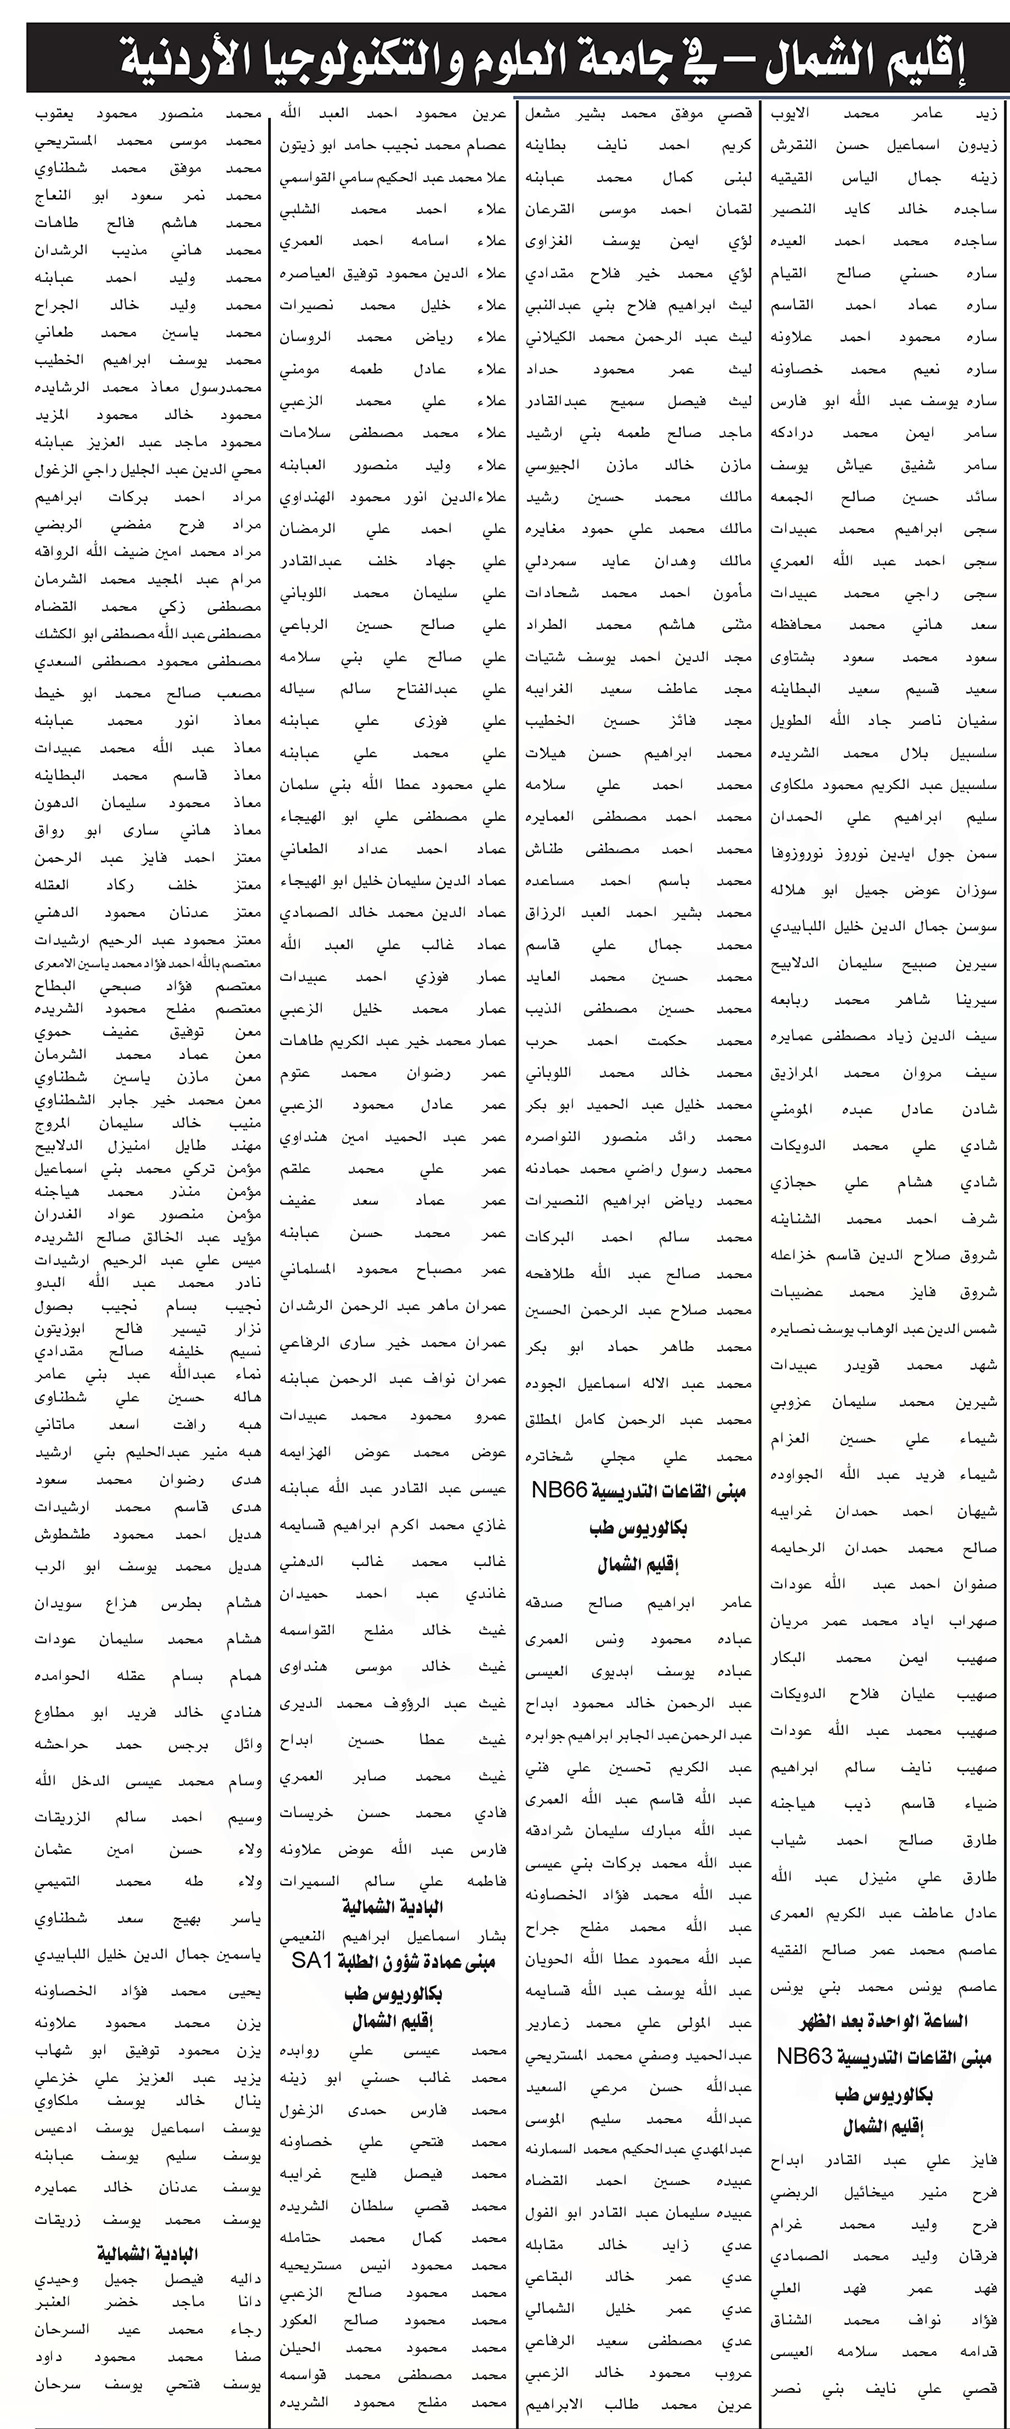 إقليم الشمال – في جامعة العلوم والتكنولوجيا الأردنية
زيد عامر محمد الايوب
زيدون اسماعيل حسن النقرش
زينه جمال الياس القيقيه
ساجده خالد كايد النصير
ساجده محمد احمد العيده
ساره حسني صالح القيام
ساره عماد احمد القاسم
ساره محمود احمد علاونه
ساره نعيم محمد خصاونه
ساره يوسف عبد الله ابو فارس
سامر ايمن محمد درادكه
سامر شفيق عياش يوسف
سائد حسين صالح الجمعه
سجى ابراهيم محمد عبيدات
سجى احمد عبد الله العمري
سجى راجي محمد عبيدات
سعد هاني محمد محافظه
سعود محمد سعود بشتاوى
سعيد قسيم سعيد البطاينه
سفيان ناصر جاد الله الطويل
سلسبيل بلال محمد الشريده
سلسبيل عبد الكريم محمود ملكاوى
سليم ابراهيم علي الحمدان
سمن جول ايدين نوروز نوروزوفا
سوزان عوض جميل ابو هلاله
سوسن جمال الدين خليل اللبابيدي
سيرين صبيح سليمان الدلابيح
سيرينا شاهر محمد ربابعه
سيف الدين زياد مصطفى عمايره
سيف مروان محمد المرازيق
شادن عادل عبده المومني
شادي علي محمد الدويكات
شادي هشام علي حجازي
شرف احمد محمد الشناينه
شروق صلاح الدين قاسم خزاعله
شروق فايز محمد عضيبات
شمس الدين عبد الوهاب يوسف نصايره
شهد محمد قويدر عبيدات
شيرين محمد سليمان عزوبي
شيماء علي حسين العزام
شيماء فريد عبد الله الجواوده
شيهان احمد حمدان غرايبه
صالح محمد حمدان الرحايمه
صفوان احمد عبد الله عودات
صهراب اياد محمد عمر مريان
صهيب ايمن محمد البكار
صهيب عليان فلاح الدويكات
صهيب محمد عبد الله عودات
صهيب نايف سالم ابراهيم
ضياء قاسم ذيب هياجنه
طارق صالح احمد شياب
طارق علي منيزل عبد الله
عادل عاطف عبد الكريم العمرى
عاصم محمد عمر صالح الفقيه
عاصم يونس محمد بني يونس
الساعة الواحدة بعد الظهر
مبنى القاعات التدريسية NB63
بكالوريوس طب
إقليم الشمال
فايز علي عبد القادر ابداح
فرح منير ميخائيل الربضي
فرح وليد محمد غرام
فرقان وليد محمد الصمادي
فهد عمر فهد العلي
فؤاد نواف محمد الشناق
قدامه محمد سلامه العيسى
قصي علي نايف بني نصر
قصي موفق محمد بشير مشعل
كريم احمد نايف بطاينه
لبنى كمال محمد عبابنه
لقمان احمد موسى القرعان
لؤي ايمن يوسف الغزاوى
لؤي محمد خير فلاح مقدادي
ليث ابراهيم فلاح بني عبدالنبي
ليث عبد الرحمن محمد الكيلاني
ليث عمر محمود حداد
ليث فيصل سميح عبدالقادر
ماجد صالح طعمه بني ارشيد
مازن خالد مازن الجيوسي
مالك محمد حسين رشيد
مالك محمد علي حمود مغايره
مالك وهدان عايد سمردلي
مأمون احمد محمد شحادات
مثنى هاشم محمد الطراد
مجد الدين احمد يوسف شتيات
مجد عاطف سعيد الغرايبه
مجد فائز حسين الخطيب
محمد ابراهيم حسن هيلات
محمد احمد علي سلامه
محمد احمد مصطفى العمايره
محمد احمد مصطفى طناش
محمد باسم احمد مساعده
محمد بشير احمد العبد الرزاق
محمد جمال علي قاسم
محمد حسين محمد العايد
محمد حسين مصطفى الذيب
محمد حكمت احمد حرب
محمد خالد محمد اللوباني
محمد خليل عبد الحميد ابو بكر
محمد رائد منصور النواصره
محمد رسول راضي محمد حمادنه
محمد رياض ابراهيم النصيرات
محمد سالم احمد البركات
محمد صالح عبد الله طلافحه
محمد صلاح عبد الرحمن الحسين
محمد طاهر حماد ابو بكر
محمد عبد الاله اسماعيل الجوده
محمد عبد الرحمن كامل المطلق
محمد علي مجلي شخاتره
مبنى القاعات التدريسية NB66
بكالوريوس طب
إقليم الشمال
عامر ابراهيم صالح صدقه
عباده محمود ونس العمرى
عباده يوسف ابديوى العيسى
عبد الرحمن خالد محمود ابداح
عبد الرحمن عبد الجابر ابراهيم جوابره
عبد الكريم تحسين علي فني
عبد الله قاسم عبد الله العمرى
عبد الله مبارك سليمان شرادقه
عبد الله محمد بركات بني عيسى
عبد الله محمد فؤاد الخصاونه
عبد الله محمد مفلح جراح
عبد الله محمود عطا الله الحويان
عبد الله يوسف عبد الله قسايمه
عبد المولى علي محمد زعارير
عبدالحميد وصفي محمد المستريحي
عبدالله حسن مرعي السعيد
عبدالله محمد سليم الموسى
عبدالمهدي عبدالحكيم محمد السمارنه
عبيده حسين احمد القضاه
عبيده سليمان عبد القادر ابو الفول
عدي زايد خالد مقابله
عدي عمر خالد البقاعي
عدي عمر خليل الشمالي
عدي مصطفى سعيد الرفاعي
عروب محمود خالد الزعبي
عرين محمد طالب الابراهيم
عرين محمود احمد العبد الله
عصام محمد نجيب حامد ابو زيتون
علا محمد عبد الحكيم سامي القواسمي
علاء احمد محمد الشلبي
علاء اسامه احمد العمري
علاء الدين محمود توفيق العياصره
علاء خليل محمد نصيرات
علاء رياض محمد الروسان
علاء عادل طعمه مومني
علاء علي محمد الزعبي
علاء محمد مصطفى سلامات
علاء وليد منصور العبابنه
علاءالدين انور محمود الهنداوي
علي احمد علي الرمضان
علي جهاد خلف عبدالقادر
علي سليمان محمد اللوباني
علي صالح حسين الرباعي
علي صالح علي بني سلامه
علي عبدالفتاح سالم سياله
علي فوزى علي عبابنه
علي محمد علي عبابنه
علي محمود عطا الله بني سلمان
علي مصطفى علي ابو الهيجاء
عماد احمد عداد الطعاني
عماد الدين سليمان خليل ابو الهيجاء
عماد الدين محمد خالد الصمادي
عماد غالب علي العبد الله
عمار فوزي احمد عبيدات
عمار محمد خليل الزعبي
عمار محمد خير عبد الكريم طاهات
عمر رضوان محمد عتوم
عمر عادل محمود الزعبي
عمر عبد الحميد امين هنداوي
عمر علي محمد علقم
عمر عماد سعد عفيف
عمر محمد حسن عبابنه
عمر مصباح محمود المسلماني
عمران ماهر عبد الرحمن الرشدان
عمران محمد خير سارى الرفاعي
عمران نواف عبد الرحمن عبابنه
عمرو محمود محمد عبيدات
عوض محمد عوض الهزايمه
عيسى عبد القادر عبد الله عبابنه
غازي محمد اكرم ابراهيم قسايمه
غالب محمد غالب الدهني
غاندي عبد احمد حميدان
غيث خالد مفلح القواسمه
غيث خالد موسى هنداوى
غيث عبد الرؤوف محمد الديرى
غيث عطا حسين ابداح
غيث محمد صابر العمري
فادي محمد حسن خريسات
فارس عبد الله عوض علاونه
فاطمه علي سالم السميرات
البادية الشمالية
بشار اسماعيل ابراهيم النعيمي
مبنى عمادة شؤون الطلبة SA1
بكالوريوس طب
إقليم الشمال
محمد عيسى علي روابده
محمد غالب حسني ابو زينه
محمد فارس حمدى الزغول
محمد فتحي علي خصاونه
محمد فيصل فليح غرايبه
محمد قصي سلطان الشريده
محمد كمال محمد حتامله
محمد محمود انيس مستريحيه
محمد محمود صالح الزعبي
محمد محمود صالح العكور
محمد محمود محمد الحيلن
محمد مصطفى محمد قواسمه
محمد مفلح محمود الشريده
محمد منصور محمود يعقوب
محمد موسى محمد المستريحي
محمد موفق محمد شطناوي
محمد نمر سعود ابو النعاج
محمد هاشم فالح طاهات
محمد هاني مذيب الرشدان
محمد وليد احمد عبابنه
محمد وليد خالد الجراح
محمد ياسين محمد طعاني
محمد يوسف ابراهيم الخطيب
محمدرسول معاذ محمد الرشايده
محمود خالد محمود المزيد
محمود ماجد عبد العزيز عبابنه
محي الدين عبد الجليل راجي الزغول
مراد احمد بركات ابراهيم
مراد فرح مفضي الربضي
مراد محمد امين ضيف الله الرواقه
مرام عبد المجيد محمد الشرمان
مصطفى زكي محمد القضاه
مصطفى عبد الله مصطفى ابو الكشك
مصطفى محمود مصطفى السعدي
مصعب صالح محمد ابو خيط
معاذ انور محمد عبابنه
معاذ عبد الله محمد عبيدات
معاذ قاسم محمد البطاينه
معاذ محمود سليمان الدهون
معاذ هاني سارى ابو رواق
معتز احمد فايز عبد الرحمن
معتز خلف ركاد العقله
معتز عدنان محمود الدهني
معتز محمود عبد الرحيم ارشيدات
معتصم بالله احمد فؤاد محمد ياسين الامعرى
معتصم فؤاد صبحي البطاح
معتصم مفلح محمود الشريده
معن توفيق عفيف حموي
معن عماد محمد الشرمان
معن مازن ياسين شطناوي
معن محمد خير جابر الشطناوي
منيب خالد سليمان المروج
مهند طايل امنيزل الدلابيح
مؤمن تركي محمد بني اسماعيل
مؤمن منذر محمد هياجنه
مؤمن منصور عواد الغدران
مؤيد عبد الخالق صالح الشريده
ميس علي عبد الرحيم ارشيدات
نادر محمد عبد الله البدو
نجيب بسام نجيب بصول
نزار تيسير فالح ابوزيتون
نسيم خليفه صالح مقدادي
نماء عبدالله عبد بني عامر
هاله حسين علي شطناوى
هبه رافت اسعد ماتاني
هبه منير عبدالحليم بني ارشيد
هدى رضوان محمد سعود
هدى قاسم محمد ارشيدات
هديل احمد محمود طشطوش
هديل محمد يوسف ابو الرب
هشام بطرس هزاع سويدان
هشام محمد سليمان عودات
همام بسام عقله الحوامده
هنادي خالد فريد ابو مطاوع
وائل برجس حمد حراحشه
وسام محمد عيسى الدخل الله
وسيم احمد سالم الزريقات
ولاء حسن امين عثمان
ولاء طه محمد التميمي
ياسر بهيج سعد شطناوي
ياسمين جمال الدين خليل اللبابيدي
يحيى محمد فؤاد الخصاونه
يزن محمد محمود علاونه
يزن محمود توفيق ابو شهاب
يزيد عبد العزيز علي خزعلي
ينال خالد يوسف ملكاوي
يوسف اسماعيل يوسف ادعيس
يوسف سليم يوسف عبابنه
يوسف عدنان خالد عمايره
يوسف محمد يوسف زريقات
البادية الشمالية
داليه فيصل جميل وحيدي
دانا ماجد خضر العنبر
رجاء محمد عيد السرحان
صفا محمد محمود داود
يوسف فتحي يوسف سرحان